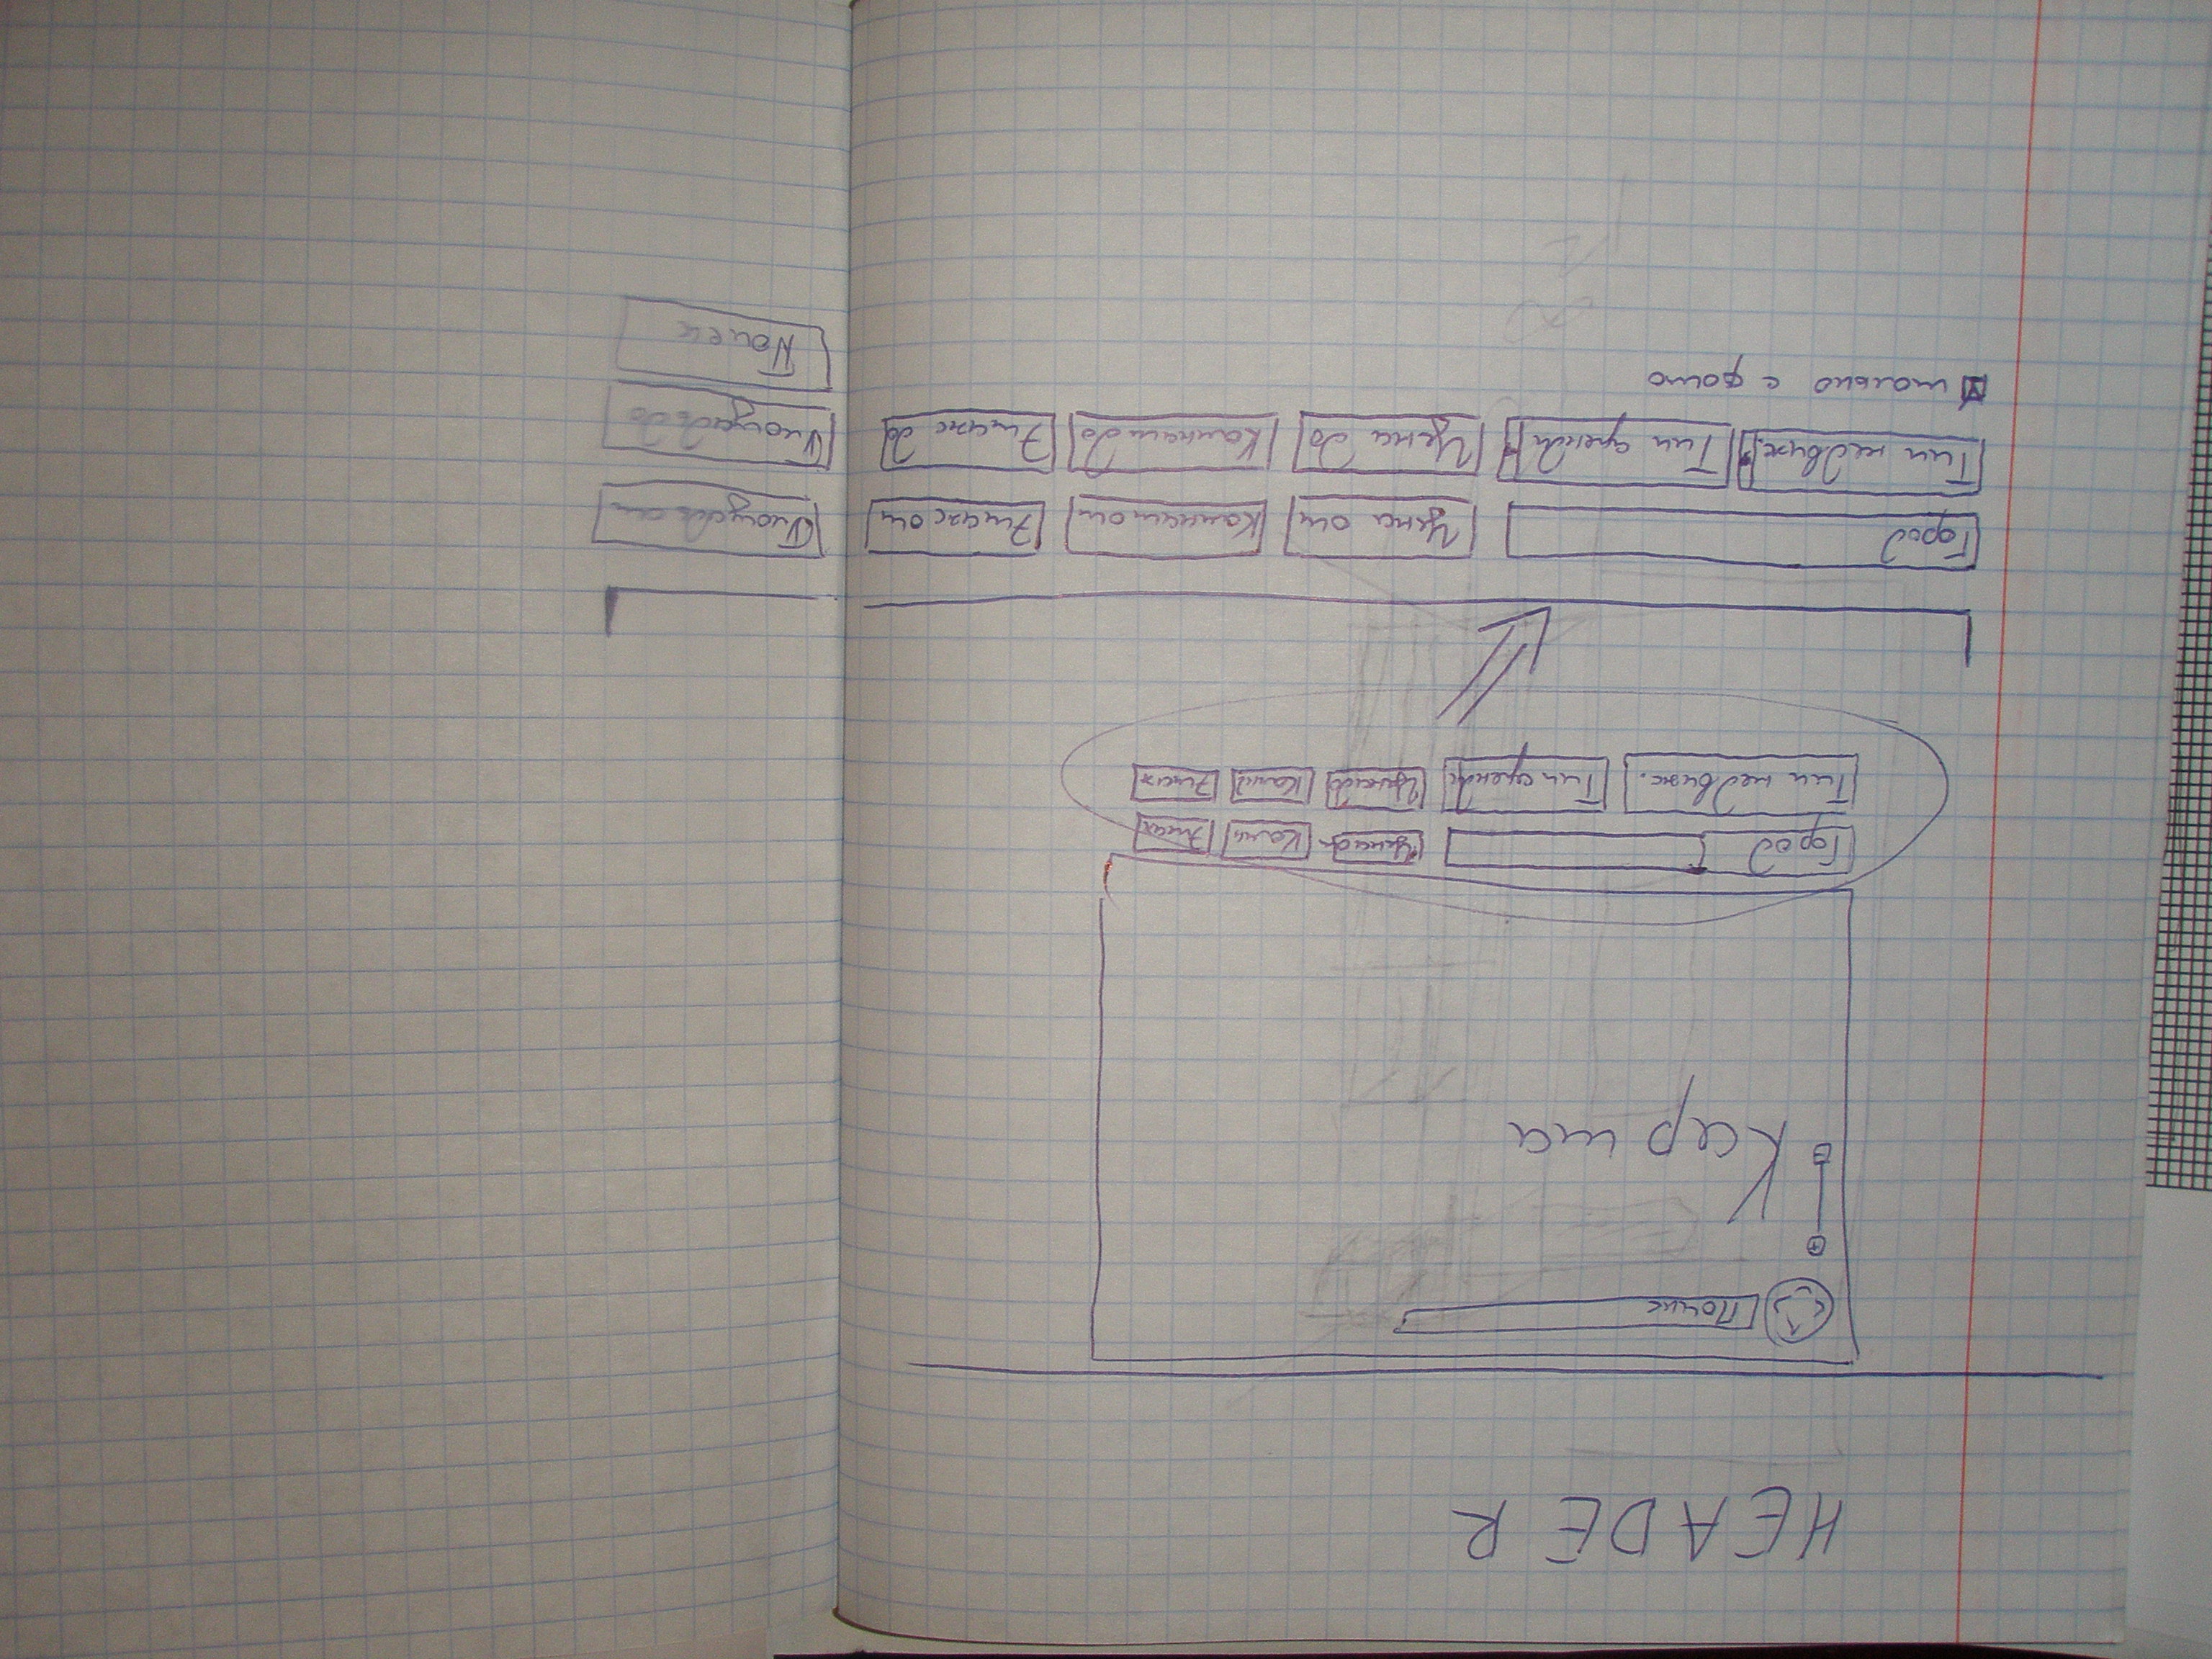 HEADER
Поиск
+
-
Карта
Город Цена от Комн Этаж
Тип недвиж. Тип аренды Цена до Комн Этаж
Город Цена от Комнат от Этаж от Площадь от
Тип недвиж. Тип аренды Цена до Комнат до Этаж до Площадь до
только с фото Поиск